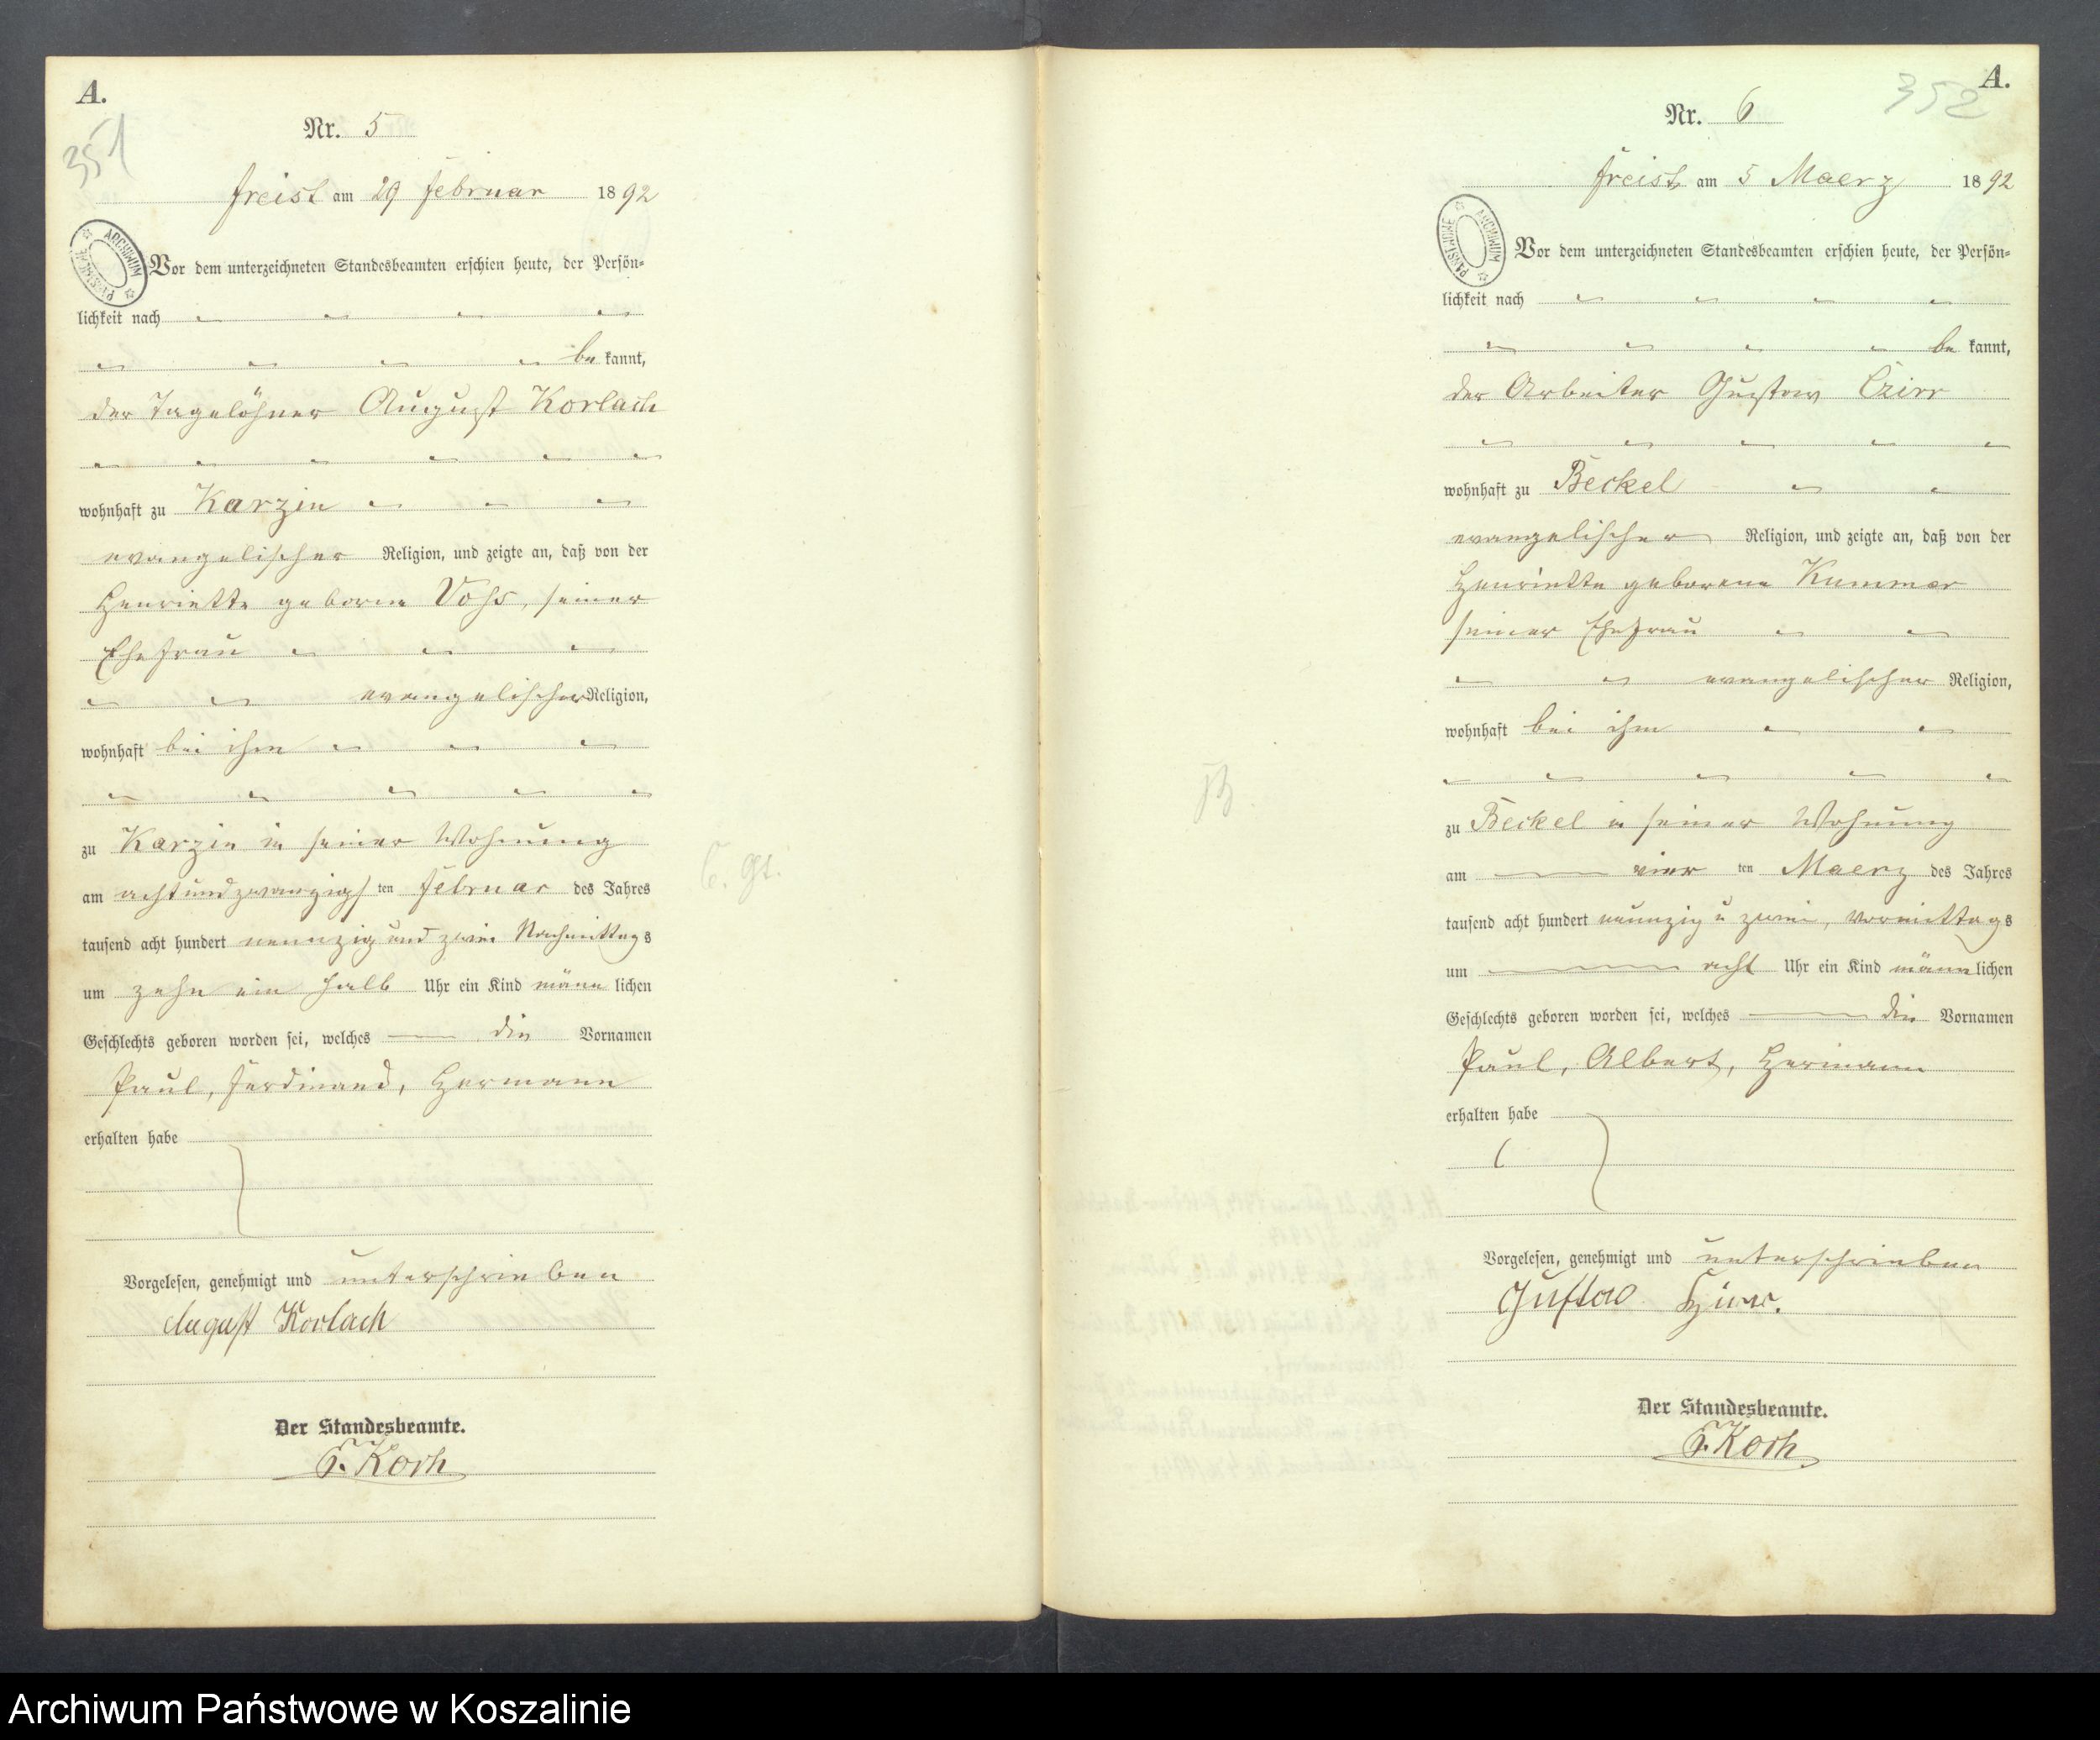 A.
351
Nr. 5
Freist am 29 Februar 1892
ARCHIWUM PAŃSTWOWE
Vor dem unterzeichneten Standesbeamten erschien heute, der Persön-
lichkeit nach
be kannt,
der Tagelöhner August Korlach
wohnhaft zu Karzin
evangelischer Religion, und zeigte an, daß von der
Henriette geborne Vohs, seiner
Ehefrau
evangelischer Religion,
wohnhaft bei ihm
zu Karzin in seiner Wohnung
am achtundzwanzigs ten Februar des Jahres
tausend acht hundert neunzig und zwei Nachmittags
um zehn ein halb Uhr ein Kind männ lichen
Geschlechts geboren worden sei, welches die Vornamen
Paul, Ferdinand, Hermann
erhalten habe
Vorgelesen, genehmigt und unterschrieben
August Korlach
Der Standesbeamte.
F. Koch
A.
352
Nr. 6
Freist am 5 Maerz 1892
ARCHIWUM PAŃSTWOWE
Vor dem unterzeichneten Standesbeamten erschien heute, der Persön-
lichkeit nach
be kannt,
der Arbeiter Gustav Czirr
wohnhaft zu Beckel
evangelischer Religion, und zeigte an, daß von der
Henriette geborene Kummer
seiner Ehefrau
evangelischer Religion,
wohnhaft bei ihm
zu Beckel in seiner Wohnung
am vier ten Maerz des Jahres
tausend acht hundert neunzig u zwei, Vormittags
um acht Uhr ein Kind männ lichen
Geschlechts geboren worden sei, welches die Vornamen
Paul, Albert, Hermann
erhalten habe
Vorgelesen, genehmigt und unterschrieben
Gustav
Der Standesbeamte.
F. Koch
Archiwum Państwowe w Koszalinie